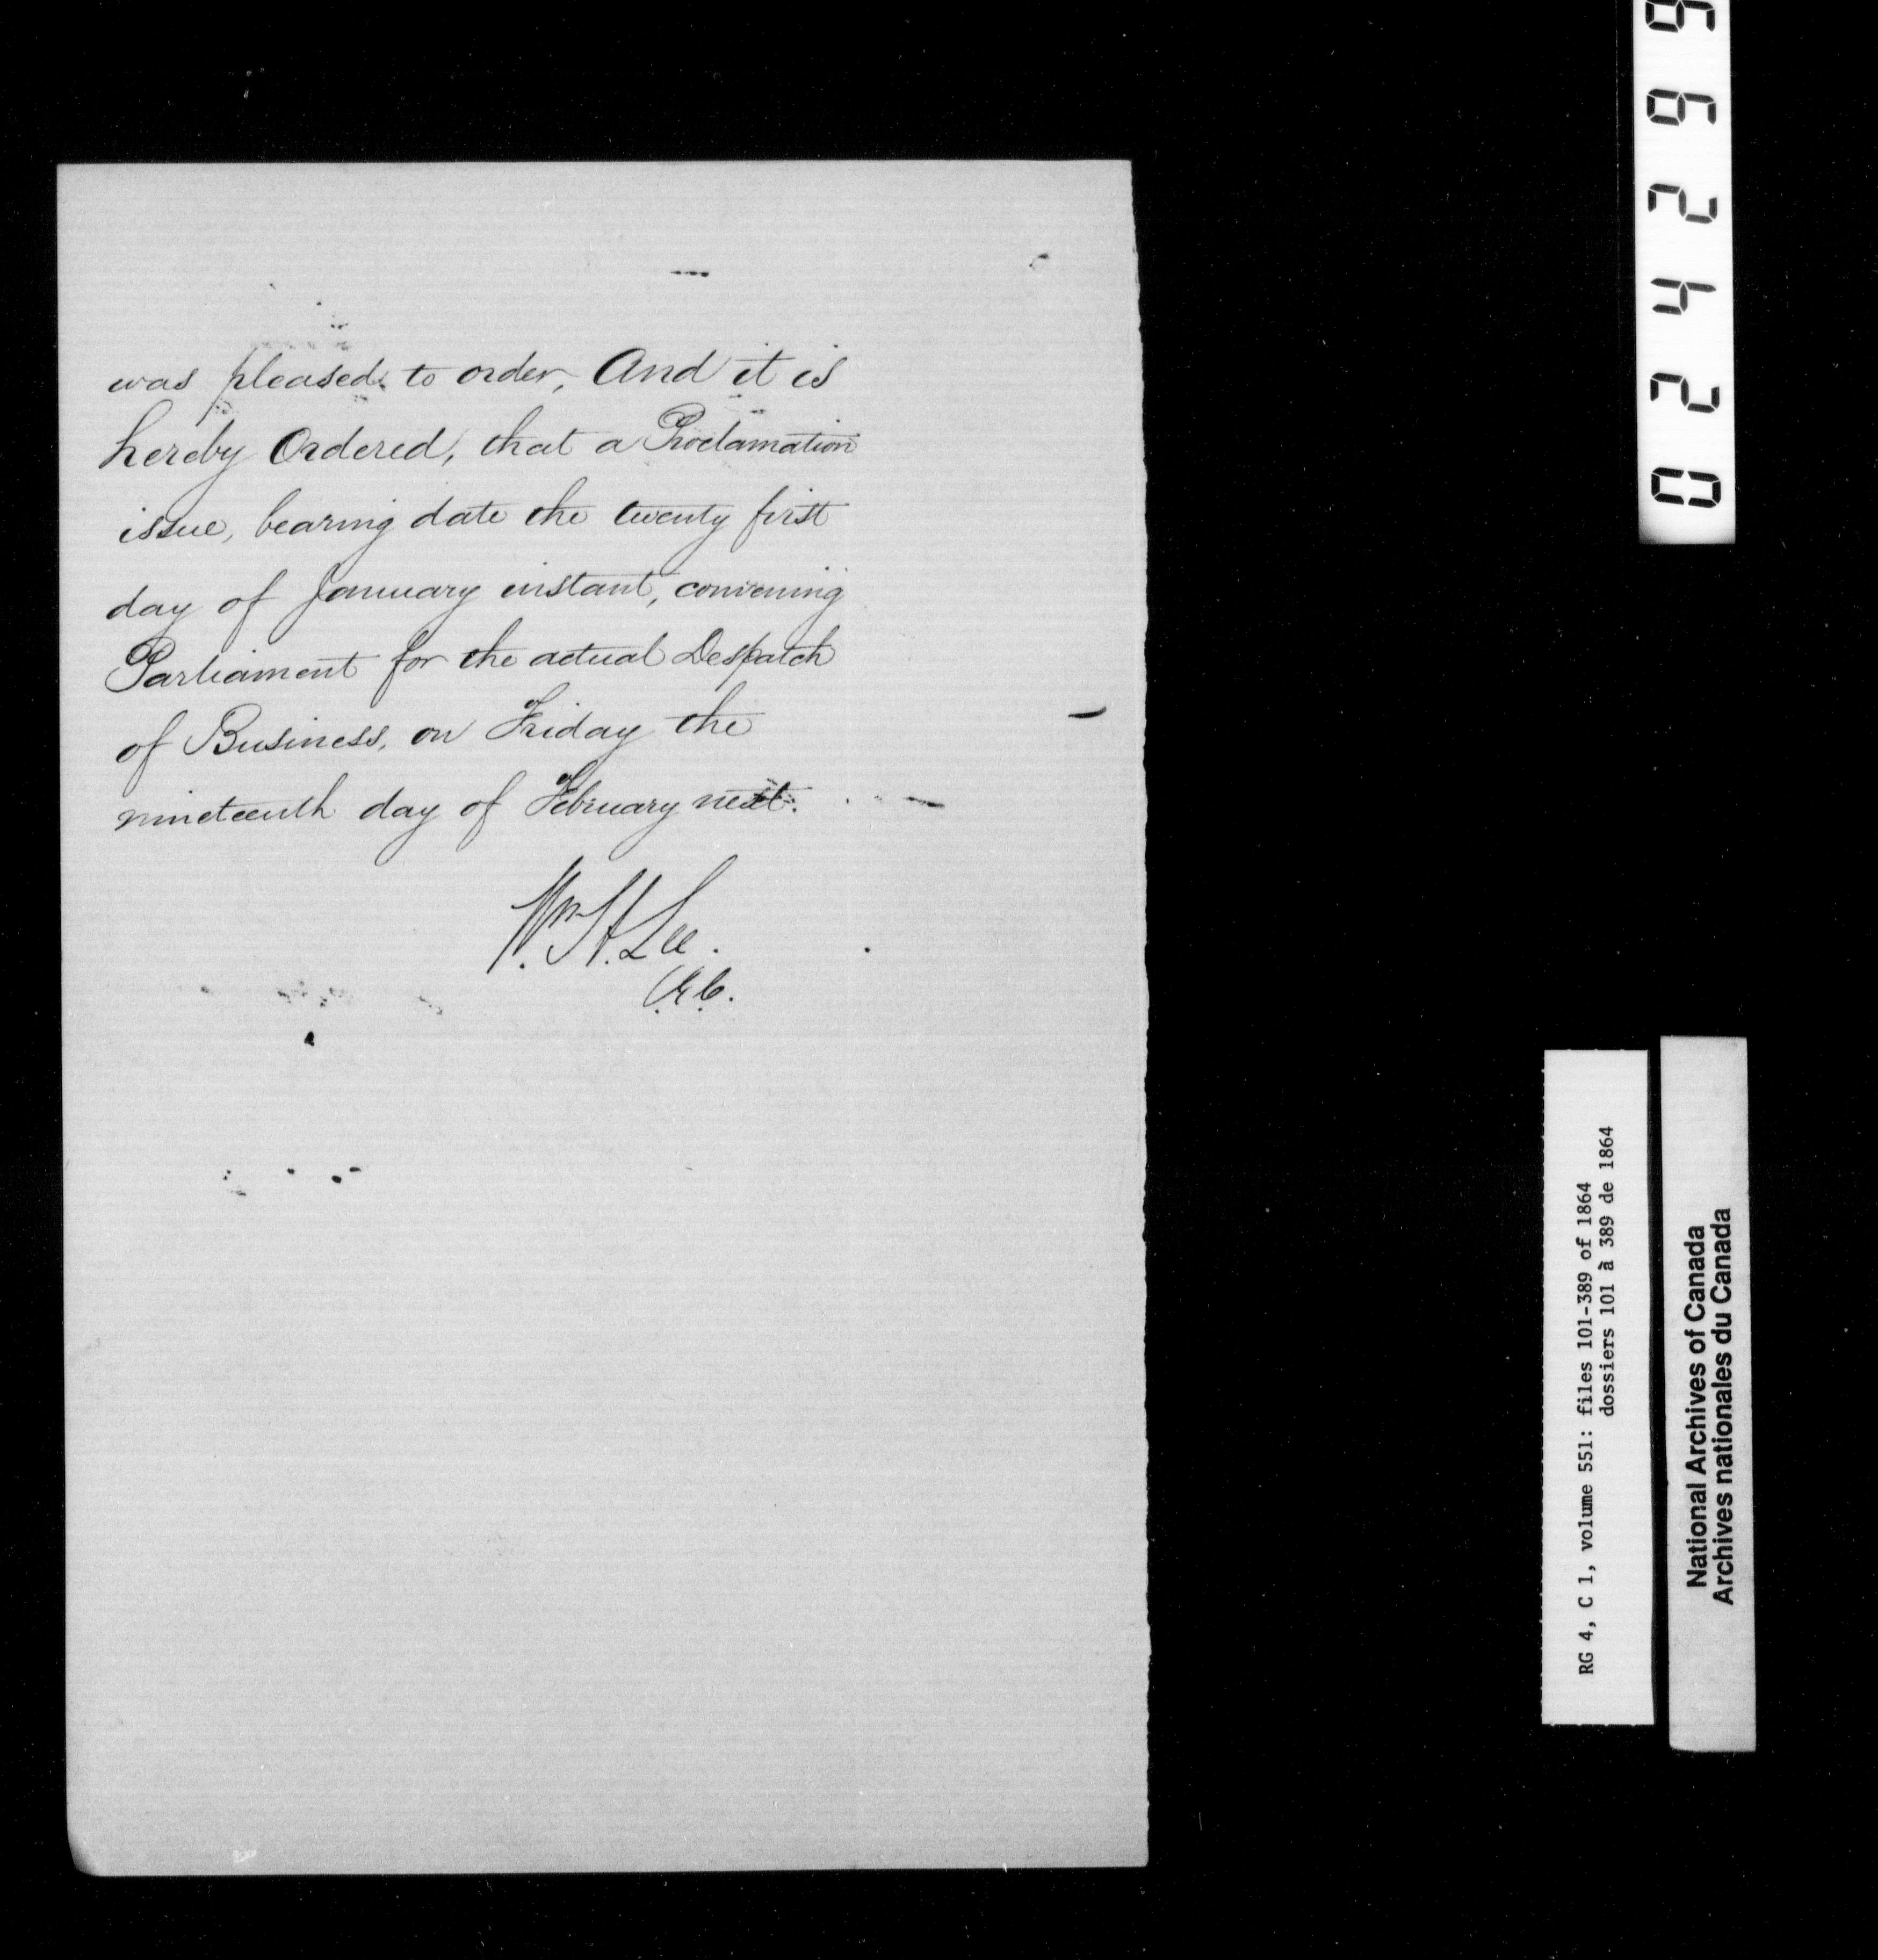 was pleased to order, And it is
hereby Ordered, that a Proclamation
issue, bearing date the twenty first
day of January instant, convening
Parliament for the actual Despatch
of Business, on Friday the
nineteenth day of February next.
Wm. H. Lee.
C.E.C.
024299
RG 4, C 1, volume 551: files 101-389 of 1864
dossiers 101 à 389 de 1864
National Archives of Canada
Archives nationales du Canada